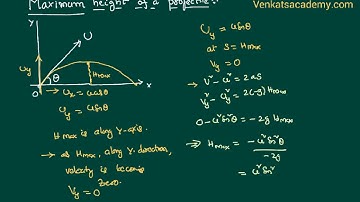 Venkatsacademy.com
Maximum height of a projectile:
Y
U
Uy
θ
Hmax
O
x
→ Ux = ucosθ
Uy = usinθ
Hmax is along Y-axis.
→ at Hmax, along Y-direction,
velocity is becomes
zero.
Vy = 0
Uy = usinθ
at S = Hmax
Vy = 0
→ V² - U² = 2as
Vy² - Uy² = 2(-g) Hmax
0 - u²sin²θ = -2g Hmax
⇒ Hmax = -u²sin²θ / -2g
= u²sin²